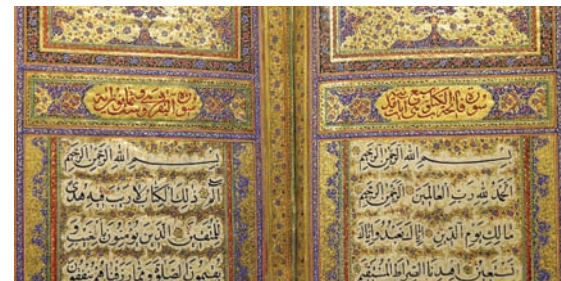 سورة فاتحة الكتاب
بسم الله الرحمن الرحيم
الحمد لله رب العالمين الرحمن الرحيم
مالك يوم الدين اياك نعبد واياك
نستعين اهدنا الصراط المستقيم
سورة البقرة
بسم الله الرحمن الرحيم
الم ذلك الكتاب لا ريب فيه هدى
للمتقين الذين يؤمنون بالغيب و
يقيمون الصلوة ومما رزقناهم ينفقون